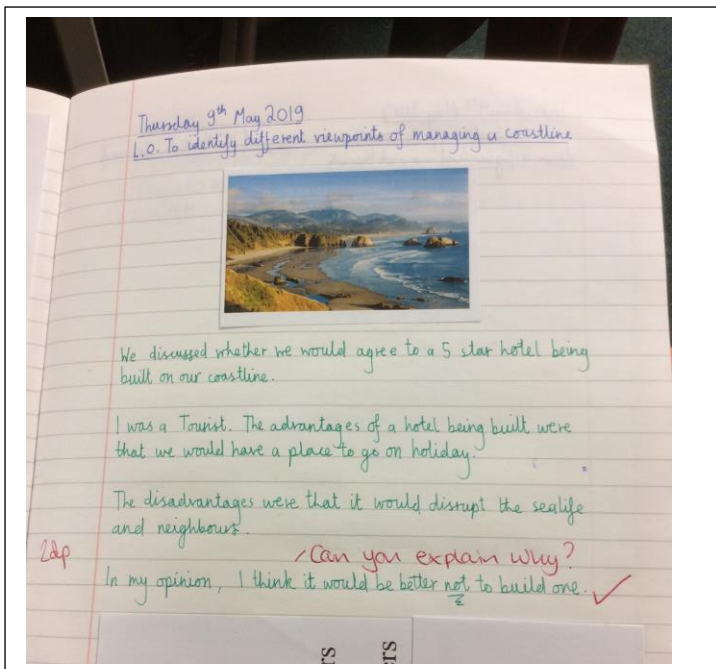 Thursday 9th May 2019
L.O. To identify different viewpoints of managing a coastline
We discussed whether we would agree to a 5 star hotel being
built on our coastline.
I was a Tourist. The advantages of a hotel being built were
that we would have a place to go on holiday.
The disadvantages were that it would disrupt the sealife
and neighbours.
2dp
Can you explain why?
In my opinion, I think it would be better not to build one.
ers
ers